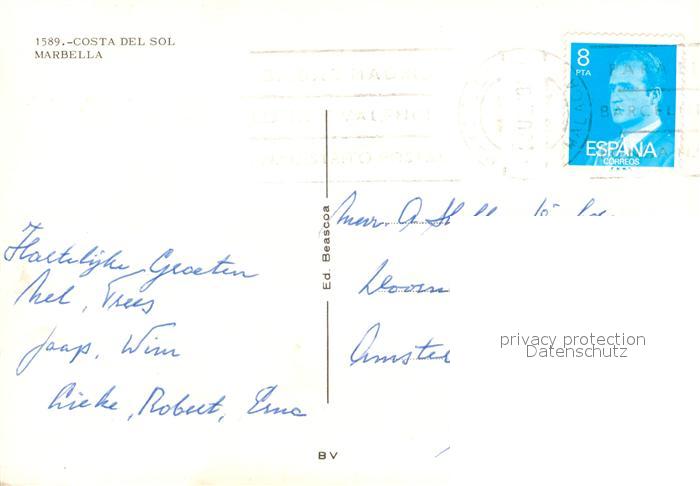 1589.-COSTA DEL SOL
MARBELLA
8
PTA
ESPAÑA
CORREOS
Ed. Beascoa
Hartelijke Groeten
Nel, Trees
Jaap, Wim
Lieke, Robert, Erna
Doorn
Amste
privacy protection
Datenschutz
BV